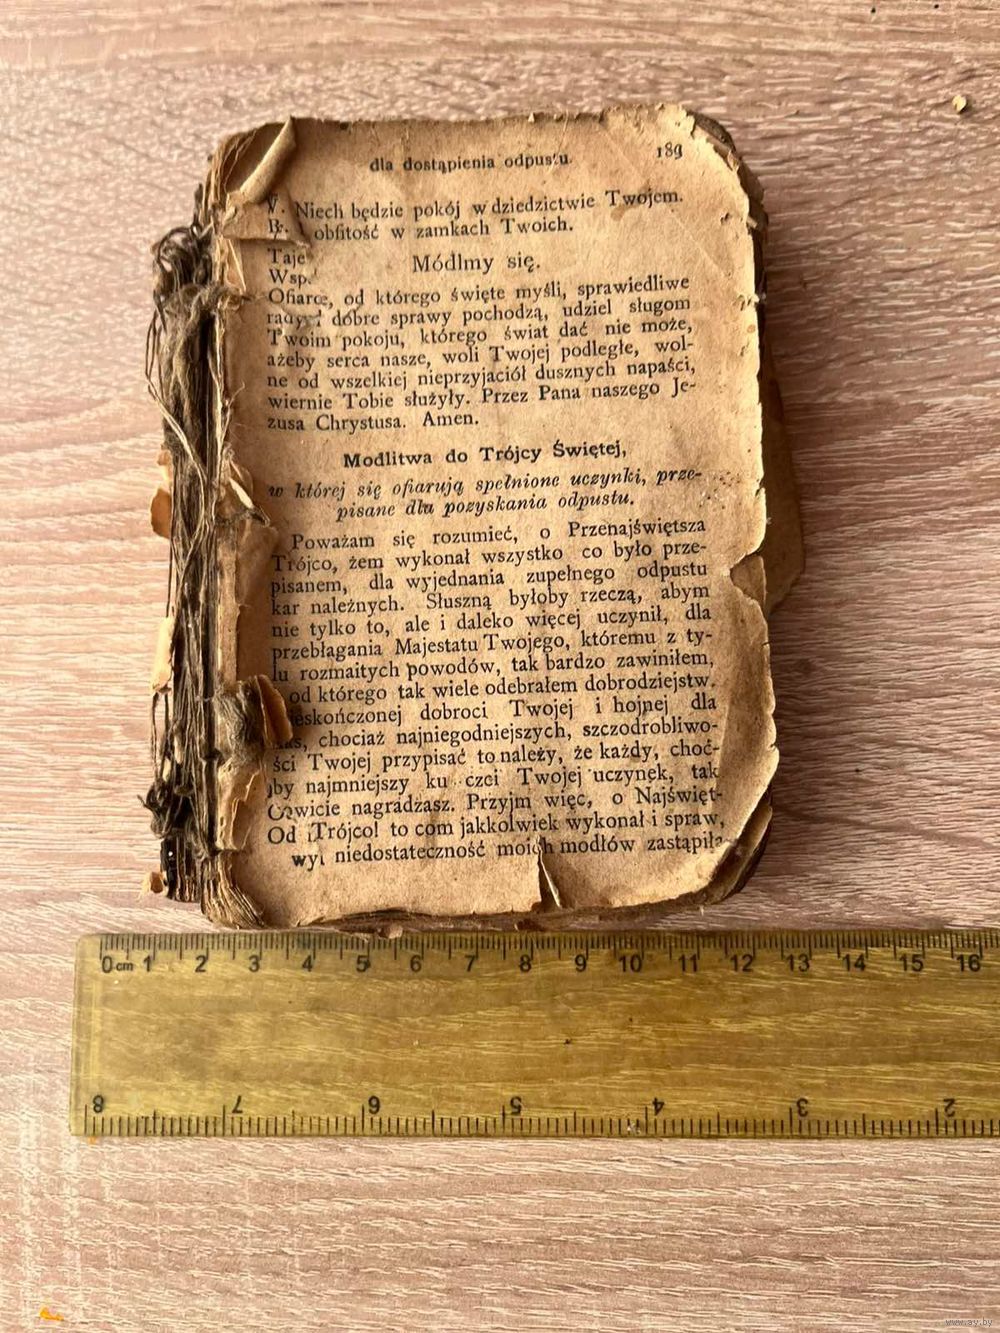 dla dostąpienia odpustu.
189
V. Niech będzie pokój w dziedzictwie Twojem.
R. obfitość w zamkach Twoich.
Taje
Wsp.
Módlmy się.
Ofiarce, od którego święte myśli, sprawiedliwe
dobre sprawy pochodzą, udziel sługom
Twoim pokoju, którego świat dać nie może,
ażeby serca nasze, woli Twojej podległe, wol-
ne od wszelkiej nieprzyjaciół dusznych napaści,
wiernie Tobie służyły. Przez Pana naszego Je-
zusa Chrystusa. Amen.
Modlitwa do Trójcy Świętej,
w której się ofiarują spełnione uczynki, prze-
pisane dla pozyskania odpustu.
Poważam się rozumieć, o Przenajświętsza
Trójco, żem wykonał wszystko co było prze-
pisanem, dla wyjednania zupełnego odpustu
kar należnych. Słuszną byłoby rzeczą, abym
nie tylko to, ale i daleko więcej uczynił, dla
przebłagania Majestatu Twojego, któremu z ty-
lu rozmaitych powodów, tak bardzo zawiniłem,
od którego tak wiele odebrałem dobrodziejstw.
ieskończonej dobroci Twojej i hojnej dla
nas, chociaż najniegodniejszych, szczodrobliwo-
ści Twojej przypisać to należy, że każdy, choć-
by najmniejszy ku czci Twojej uczynek, tak
wicie nagradzasz. Przyjm więc, o Najświęt-
Od Trójco! to com jakkolwiek wykonał i spraw,
wyl niedostateczność moich modłów zastąpiła
0 cm 1 2 3 4 5 6 7 8 9 10 11 12 13 14 15 16
8 7 6 5 4 3 2
www.ay.by